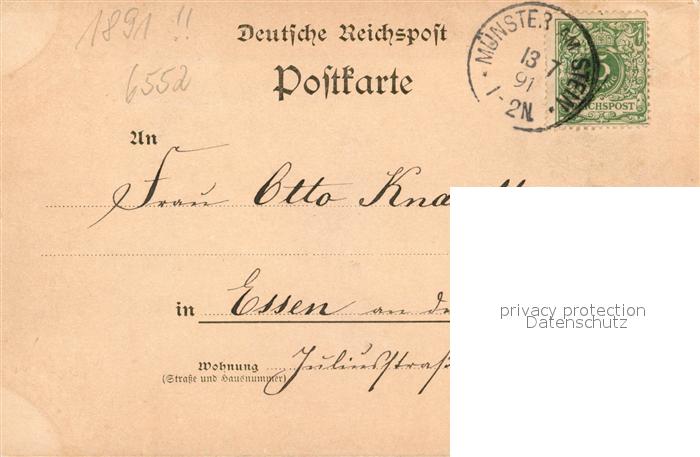 1891 !!
6552
Deutsche Reichspost
Postkarte
MÜNSTER AM STEIN
13 7
91
1-2N.
5
REICHSPOST
An
Frau Otto
in Essen an
Wohnung Juliusstraß
(Straße und Hausnummer)
privacy protection
Datenschutz